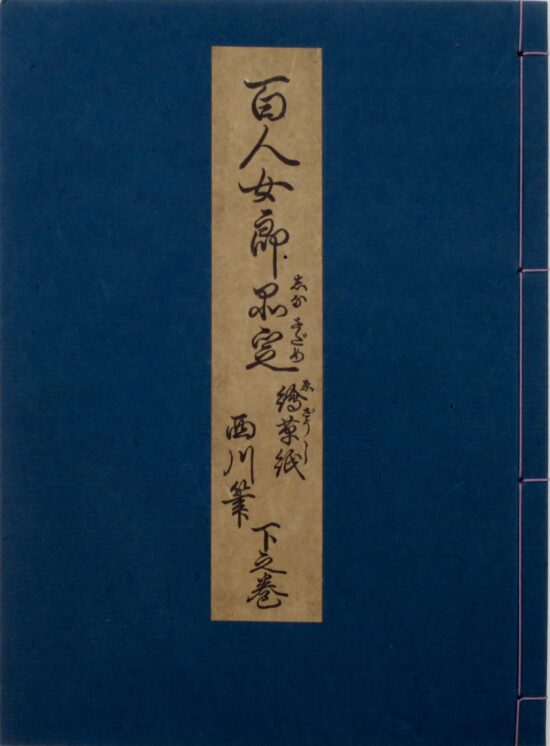 百人女郎品定
しなさだめ
繪草紙
ゑざうし
西川筆
下之巻